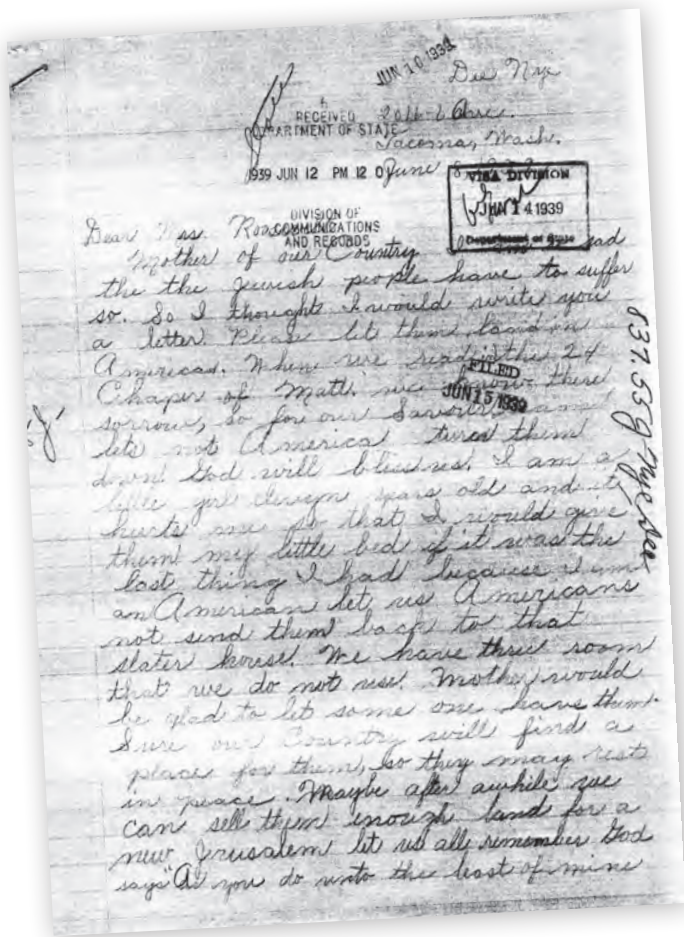 JUN 10 1939
Dee Nye
RECEIVED
DEPARTMENT OF STATE
Tacoma, Wash.
1939 JUN 12 PM 12 0
June 8
VISA DIVISION
JUN 14 1939
Department of State
DIVISION OF
COMMUNICATIONS
AND RECORDS
Dear Mrs. Roosevelt
Mother of our Country
the the Jewish people have to suffer
so. So I thought I would write you
a letter. Please let them land in
America. When we read in the 24
Chaper of Matt. we know there
FILED
JUN 15 1939
sorrow, so for our Saviour
lets not America turn them
down God will bless us. I am a
little girl years old and it
hurts me so that I would give
them my little bed if it was the
last thing I had because I am
an American let us Americans
not send them back to that
slater house. We have three room
that we do not use. Mother would
be glad to let some one have them.
Sure our Country will find a
place for them, so they may rest
in peace. Maybe after awhile we
can sell them enough land for a
new Jerusalem let us all remember God
says "As you do unto the least of mine
837.55